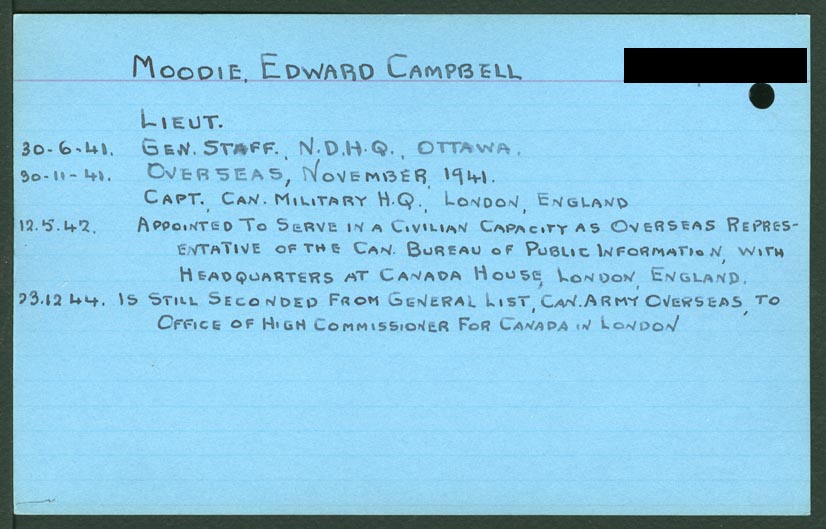 MOODIE, EDWARD CAMPBELL
LIEUT.
30-6-41. GEN. STAFF., N.D.H.Q., OTTAWA.
30-11-41. OVERSEAS, NOVEMBER, 1941.
CAPT., CAN. MILITARY H.Q., LONDON, ENGLAND
12.5.42. APPOINTED TO SERVE IN A CIVILIAN CAPACITY AS OVERSEAS REPRES-
ENTATIVE OF THE CAN. BUREAU OF PUBLIC INFORMATION, WITH
HEADQUARTERS AT CANADA HOUSE, LONDON, ENGLAND.
23.12.44. IS STILL SECONDED FROM GENERAL LIST, CAN. ARMY OVERSEAS, TO
OFFICE OF HIGH COMMISSIONER FOR CANADA IN LONDON